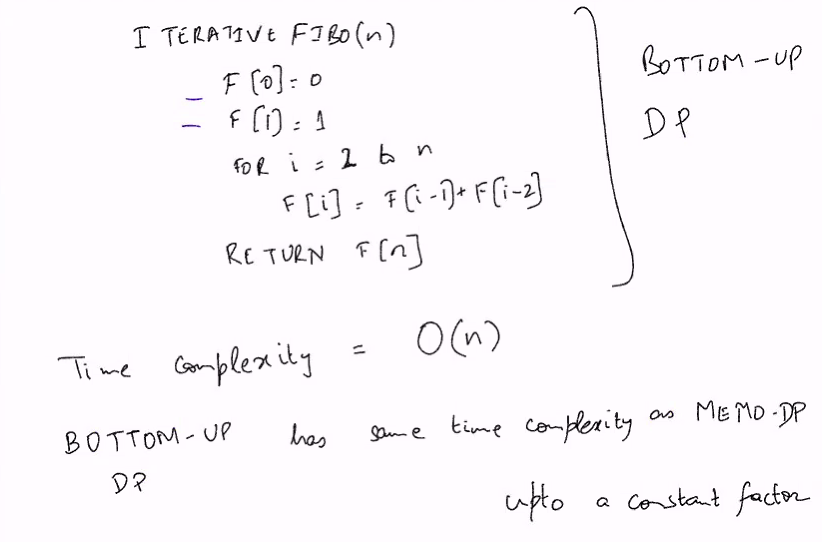 ITERATIVE FIBO(n)
F[0] = 0
F[1] = 1
FOR i = 2 to n
F[i] = F[i-1] + F[i-2]
RETURN F[n]
BOTTOM-UP
DP
Time complexity = O(n)
BOTTOM-UP has same time complexity as MEMO-DP
DP
upto a constant factor